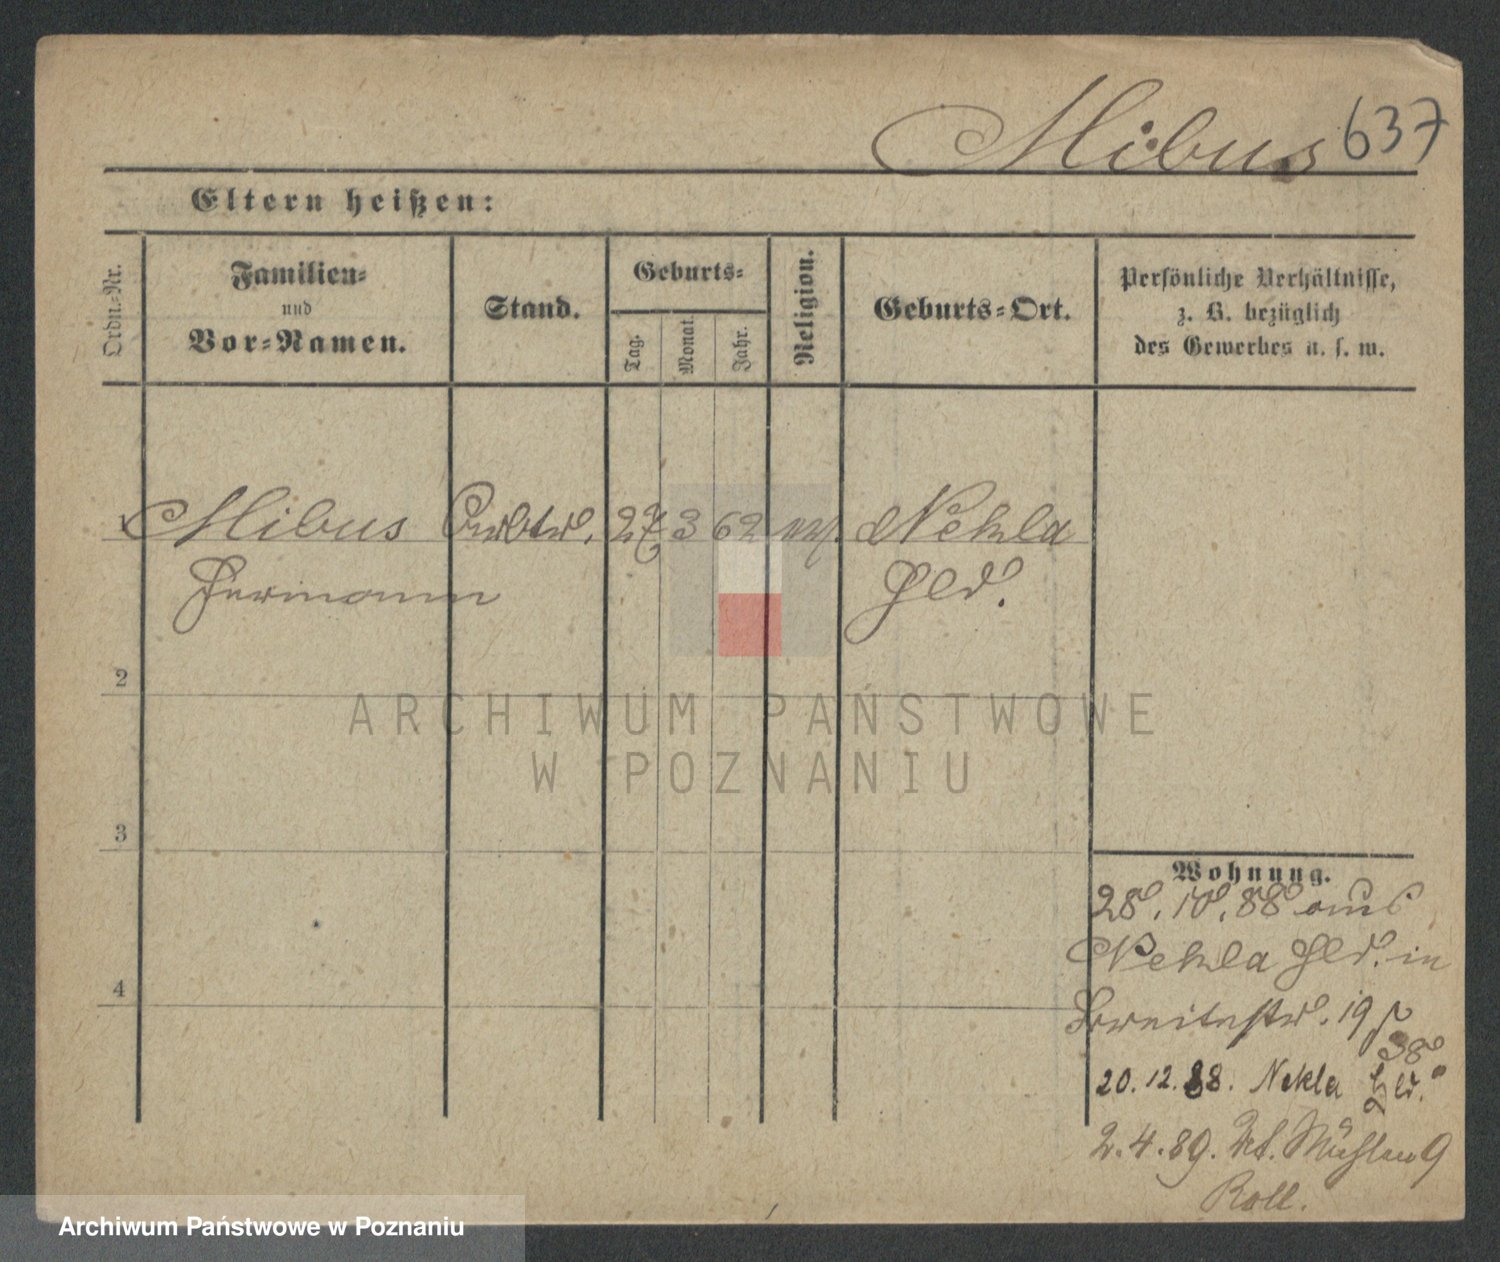 Mibus 637
Eltern heißen:
Ordn.-Nr.
Familien-
und
Vor-Namen.
Stand.
Geburts-
Tag.
Monat.
Jahr.
Religion.
Geburts-Ort.
Persönliche Verhältnisse,
z. B. bezüglich
des Gewerbes u. s. w.
1 Mibus 27 3 62 Nekla
Hermann Hld.
2
ARCHIWUM PAŃSTWOWE
W POZNANIU
3
4
Wohnung.
28.10.88 aus
Nekla Hld. in
Breitestr. 19
38
20.12.88. Nekla Hld.
2.4.89. Mühlen 9
Roll.
Archiwum Państwowe w Poznaniu